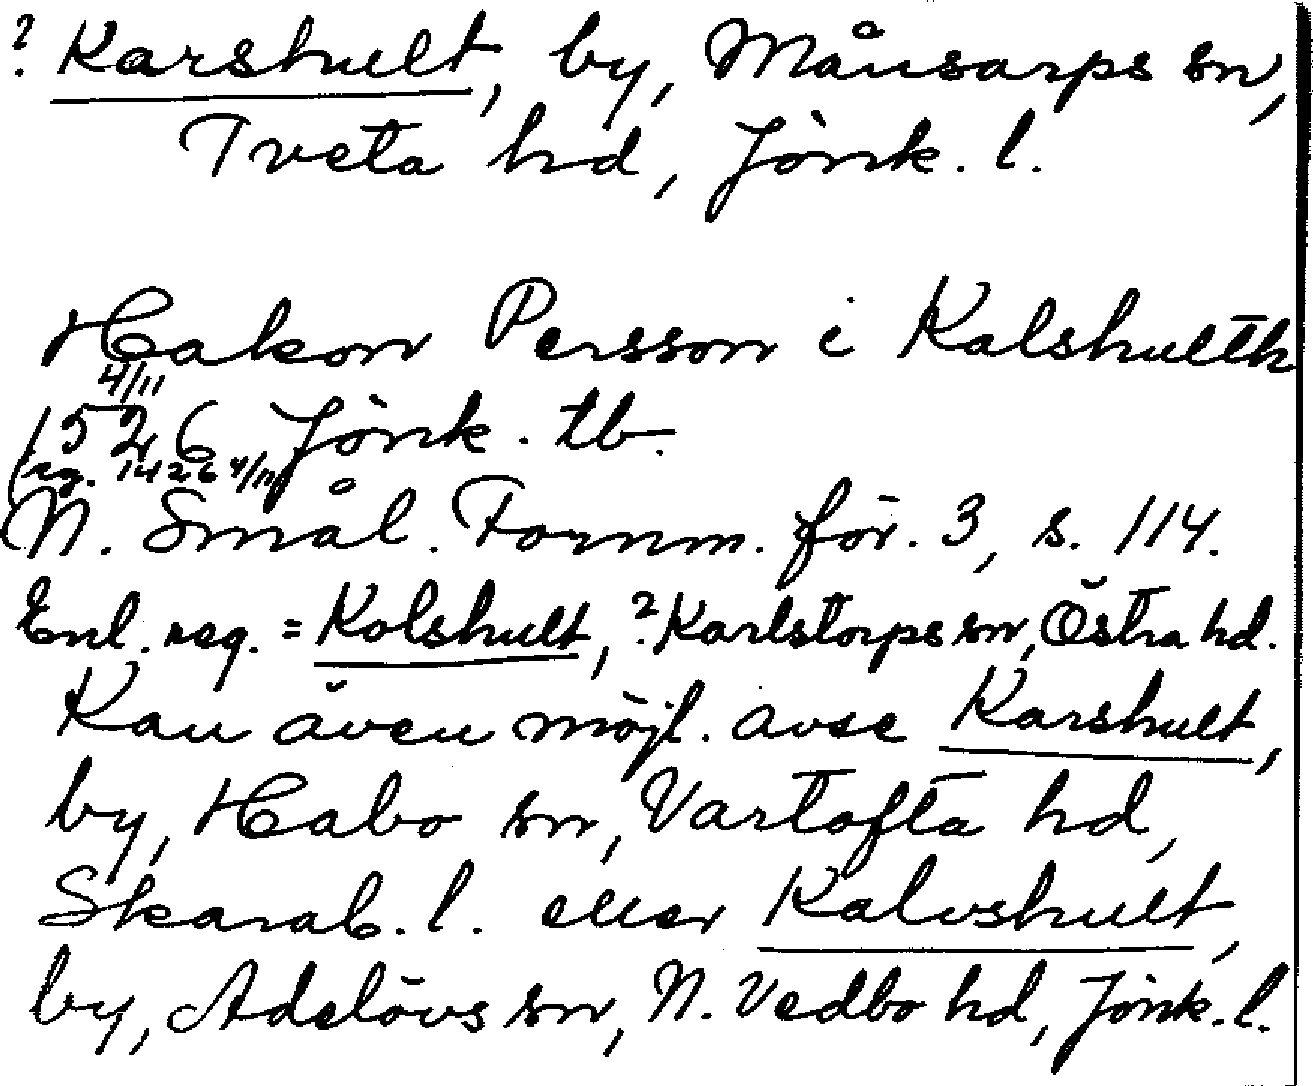 ? Karshult, by, Månsarps sn,
Tveta hd, Jönk. l.
Hakon Persson i Kalshulth
4/11
1526 Jönk. tb.
(reg. 1426 4/11)
N. Smål. Fornm. för. 3, s. 114.
Enl. reg. = Kolshult, ? Karlstorps sn, Östra hd.
Kan även möjl. avse Karshult,
by, Habo sn, Vartofta hd,
Skarab. l. eller Kalvshult,
by, Adelövs sn, N. Vedbo hd, Jönk. l.